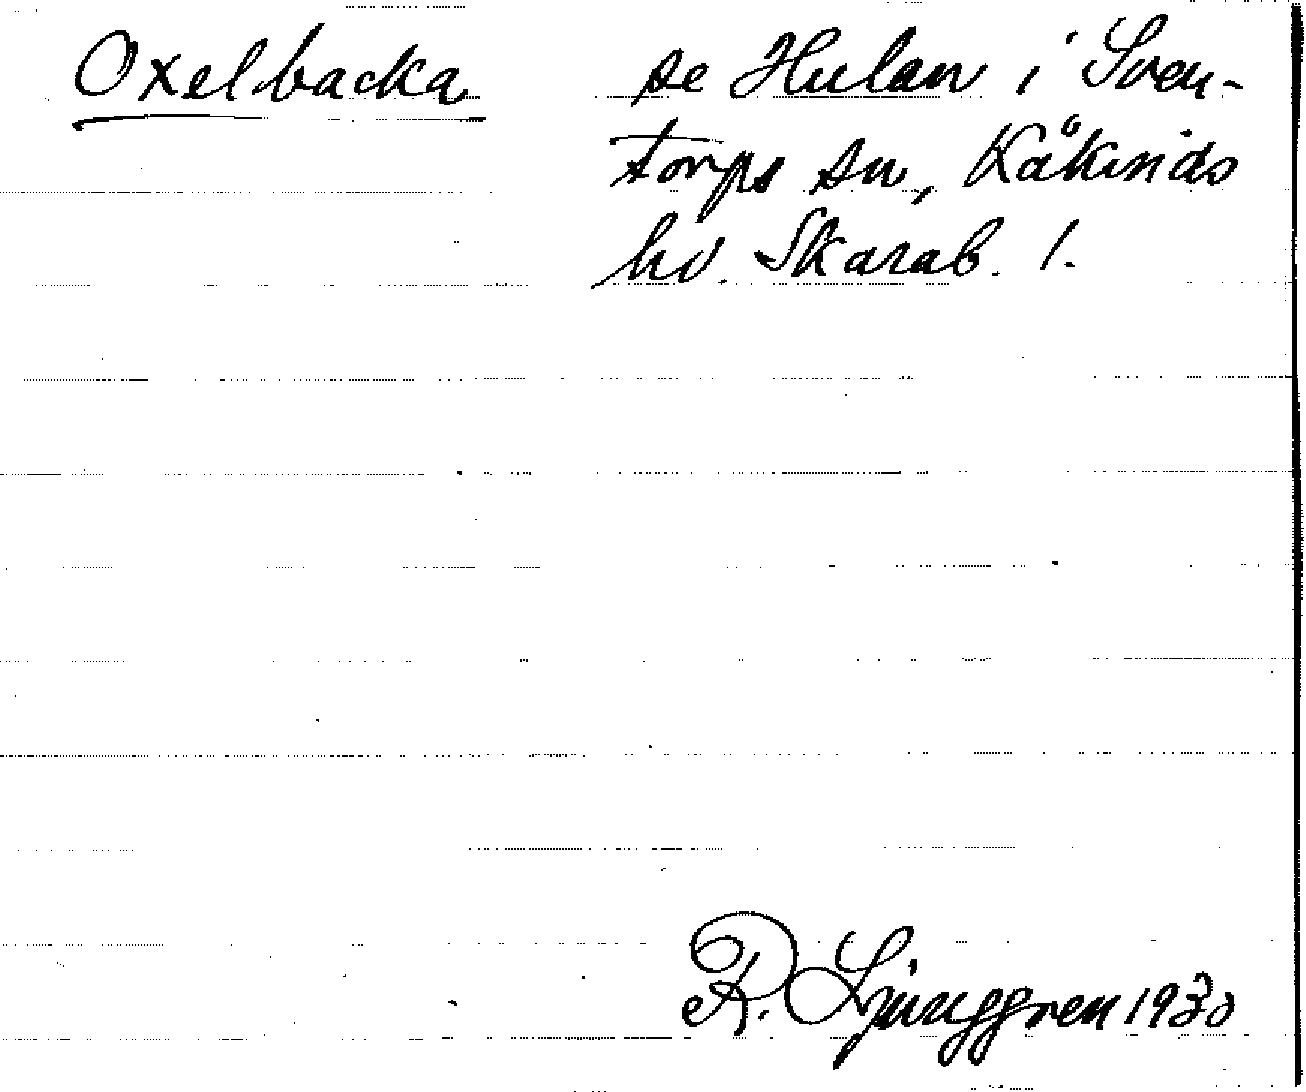 Oxelbacka se Hulan i Sven-
torps sn, Kåkinds
hd. Skarab. l.
R. Ljunggren 1930